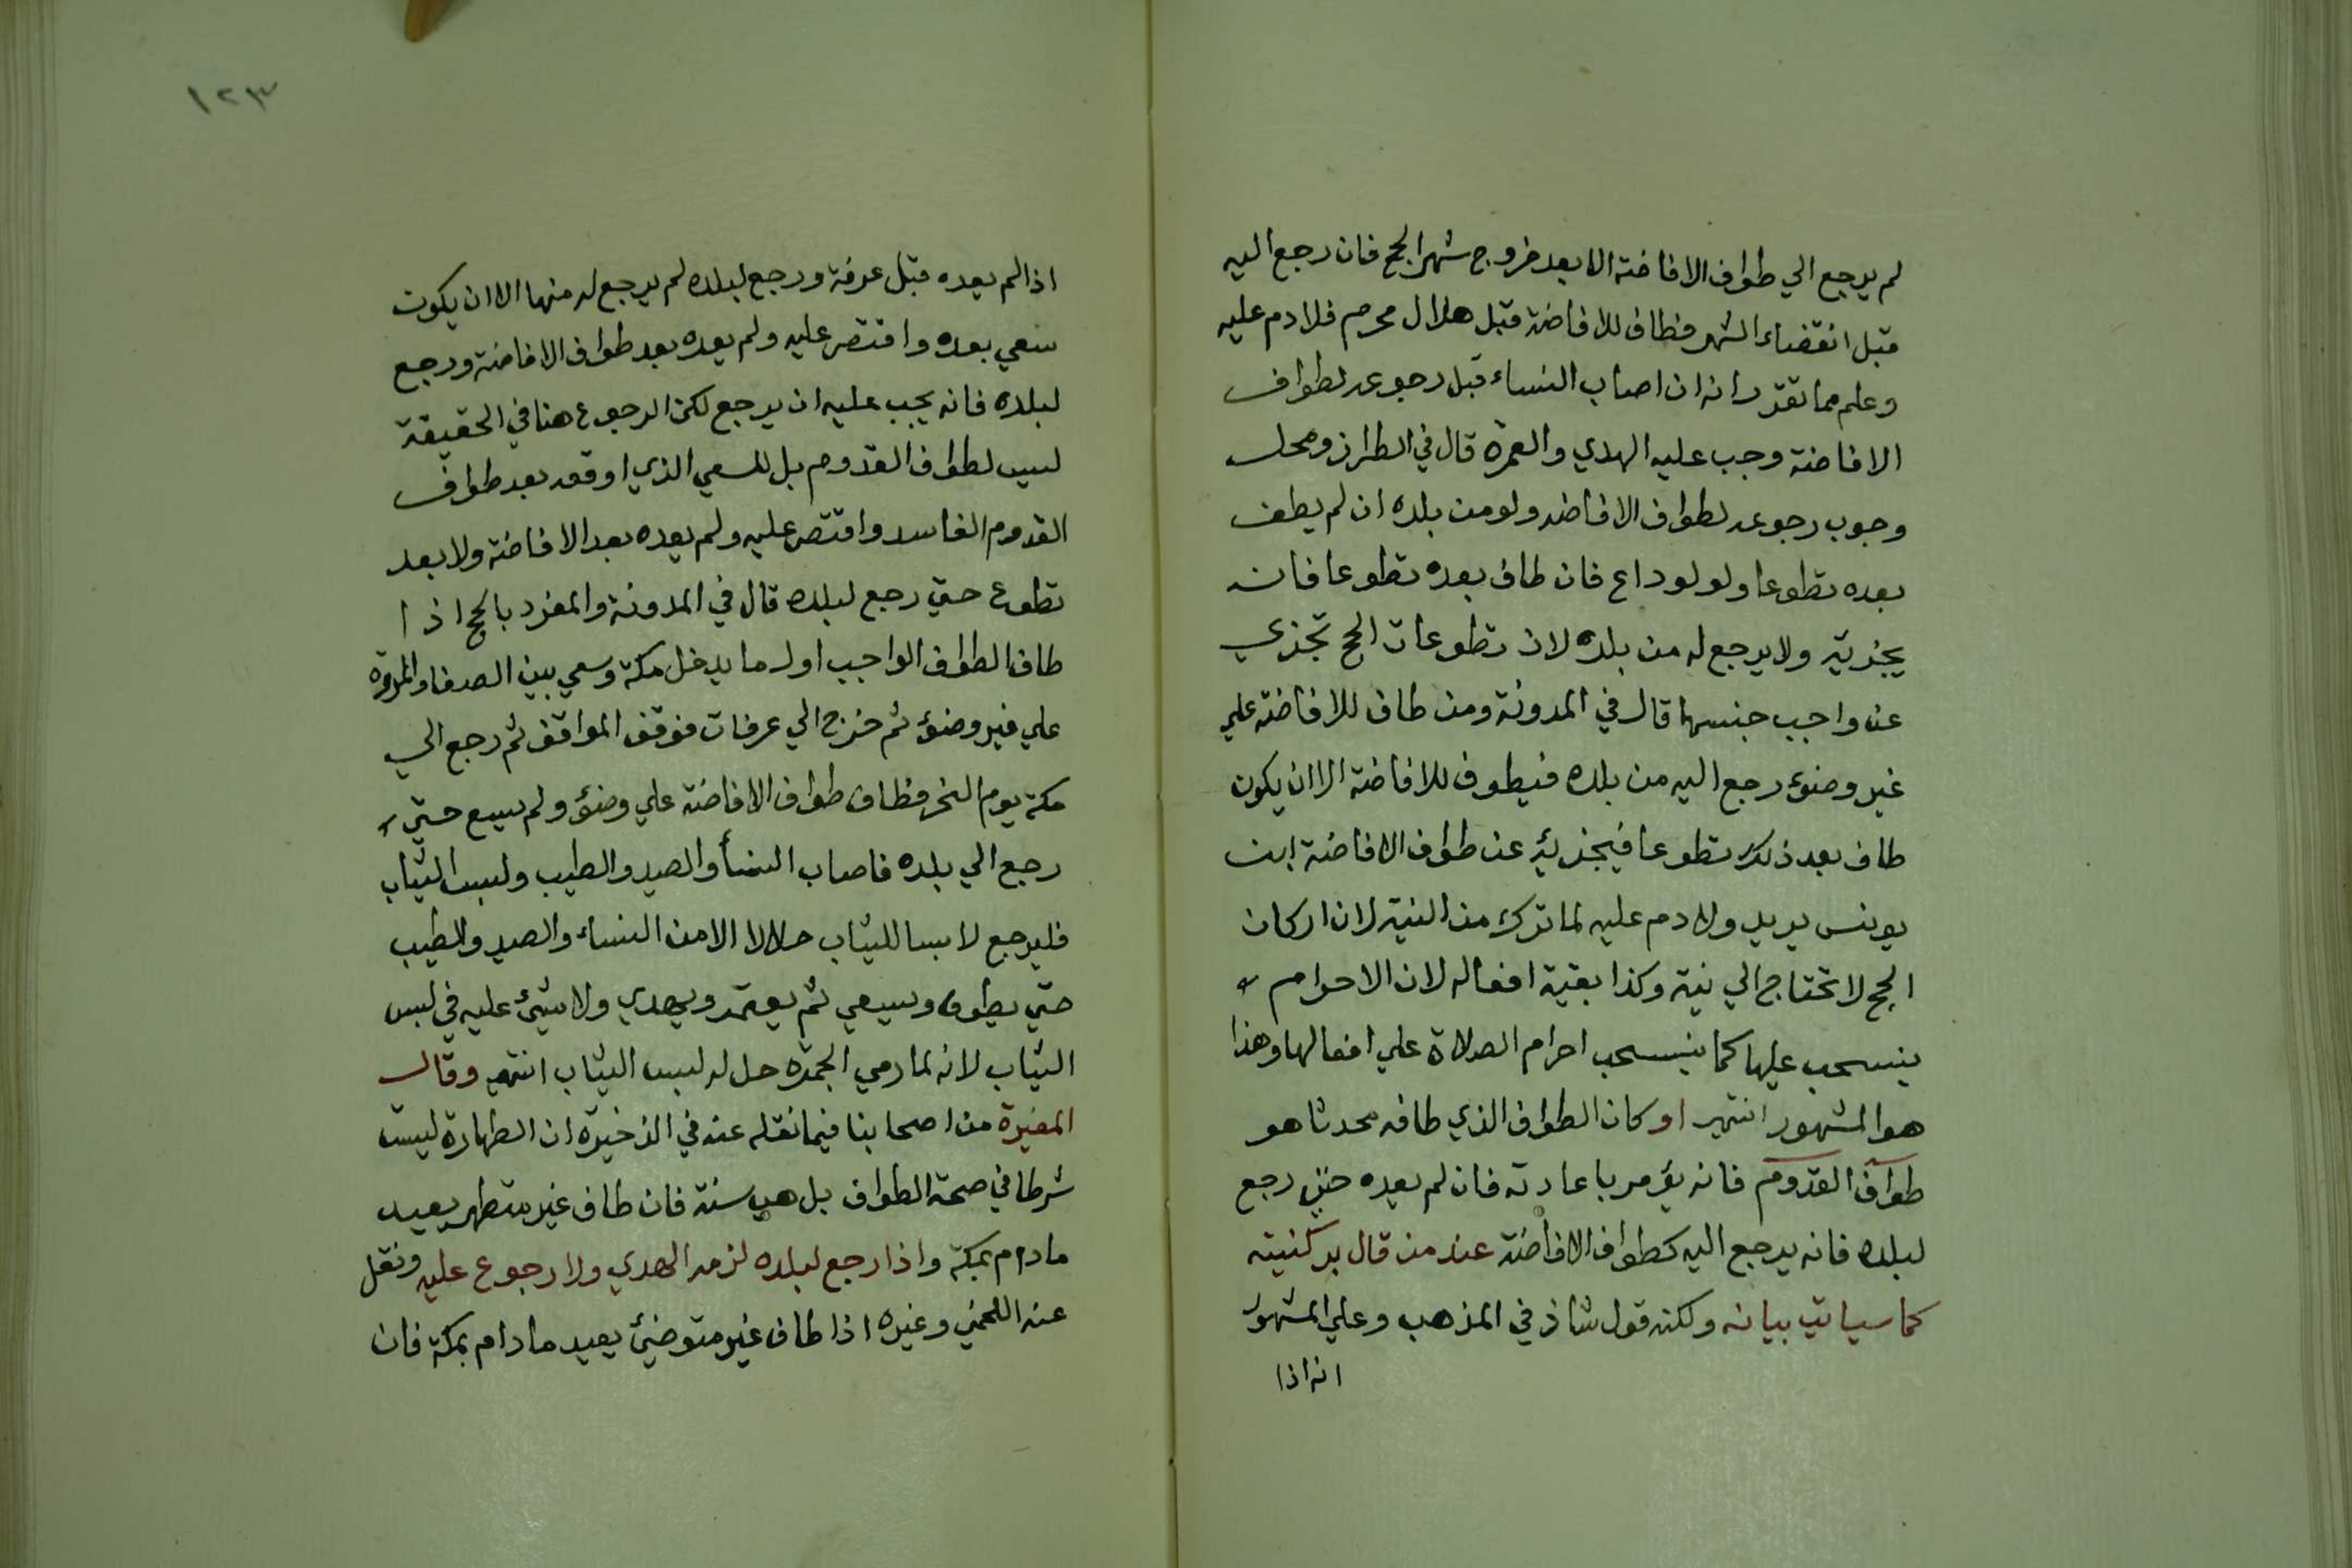 لم يرجع الي طواف الافاضة الا بعد خروج شهر الحج فان رجع اليه
قبل انقضاء الشهر فطاف للافاضة قبل هلال محرم فلا دم عليه
وعلم مما تقدر انه ان اصاب النساء قبل رجوعه لطواف
الافاضة وجب عليه الهدي والعمرة قال في الطراز ومحل
وجوب رجوعه لطواف الافاضه ولو من بلده ان لم يطف
بعده تطوعا ولو لوداع فان طاف بعده تطوعا فانه
يجزيه ولا يرجع له من بلده لان تطوعات الحج تجزي
عن واجب جنسها قال في المدونة ومن طاف للافاضة علي
غير وضوء رجع اليه من بلده فيطوف للافاضة الا ان يكون
طاف بعد ذلك تطوعا فيجزيه عن طواف الافاضة ابن
يونس يريد ولا دم عليه لما ترك من النية لان اركان
الحج لا تحتاج الي نية وكذا بقية افعاله لان الاحرام
ينسحب عليها كما ينسحب احرام الصلاة علي افعالها وهذا
هو المشهور انتهي او كان الطواف الذي طافه محدثا هو
طواف القدوم فانه يؤمر باعادته فان لم يعده حتي رجع
لبلده فانه يرجع اليه كطواف الافاضة عند من قال بركنيته
كما سياتي بيانه ولكنه قول شاذ في المذهب وعلي المشهور
انه اذا
١٢٣
اذا لم يعده قبل عرفة ورجع لبلده لم يرجع له منها الا ان يكون
سعي بعده واقتصر عليه ولم يعده بعد طواف الافاضة ورجع
لبلده فانه يجب عليه ان يرجع لكن الرجوع هنا في الحقيقة
ليس لطواف القدوم بل للسعي الذي اوقعه بعد طواف
القدوم الفاسد واقتصر عليه ولم يعده بعد الافاضة ولا بعد
تطوع حتي رجع لبلده قال في المدونة والمفرد بالحج اذا
طاف الطواف الواجب اول ما يدخل مكة وسعي بين الصفا والمروة
علي غير وضوء ثم خرج الي عرفات فوقف المواقف ثم رجع الي
مكة يوم النحر فطاف طواف الافاضة علي وضوء ولم يسع حتي
رجع الي بلده فاصاب النسأ والصيد والطيب ولبس الثياب
فليرجع لابسا للثياب حلالا الا من النساء والصيد والطيب
حتي يطوف ويسعي ثم يعتمر ويهدي ولا شيئ عليه في لبس
الثياب لانه لما رمي الجمرة حل له لبس الثياب انتهي وقال
المغيرة من اصحابنا فيما نقله عنه في الذخيرة ان الطهارة ليست
شرطا في صحة الطواف بل هي سنة فان طاف غير متطهر يعيد
مادام بمكة واذا رجع لبلده لزمه الهدي ولا رجوع عليه ونقل
عنه اللخمي وغيره اذا طاف غير متوضئ يعيد مادام بمكة فان